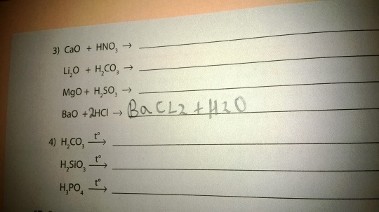 3) CaO + HNO₃ →
Li₂O + H₂CO₃ →
MgO + H₂SO₃ →
BaO + 2HCl → BaCL2 + H2O
4) H₂CO₃ —t°→
H₂SiO₃ —t°→
H₃PO₄ —t°→